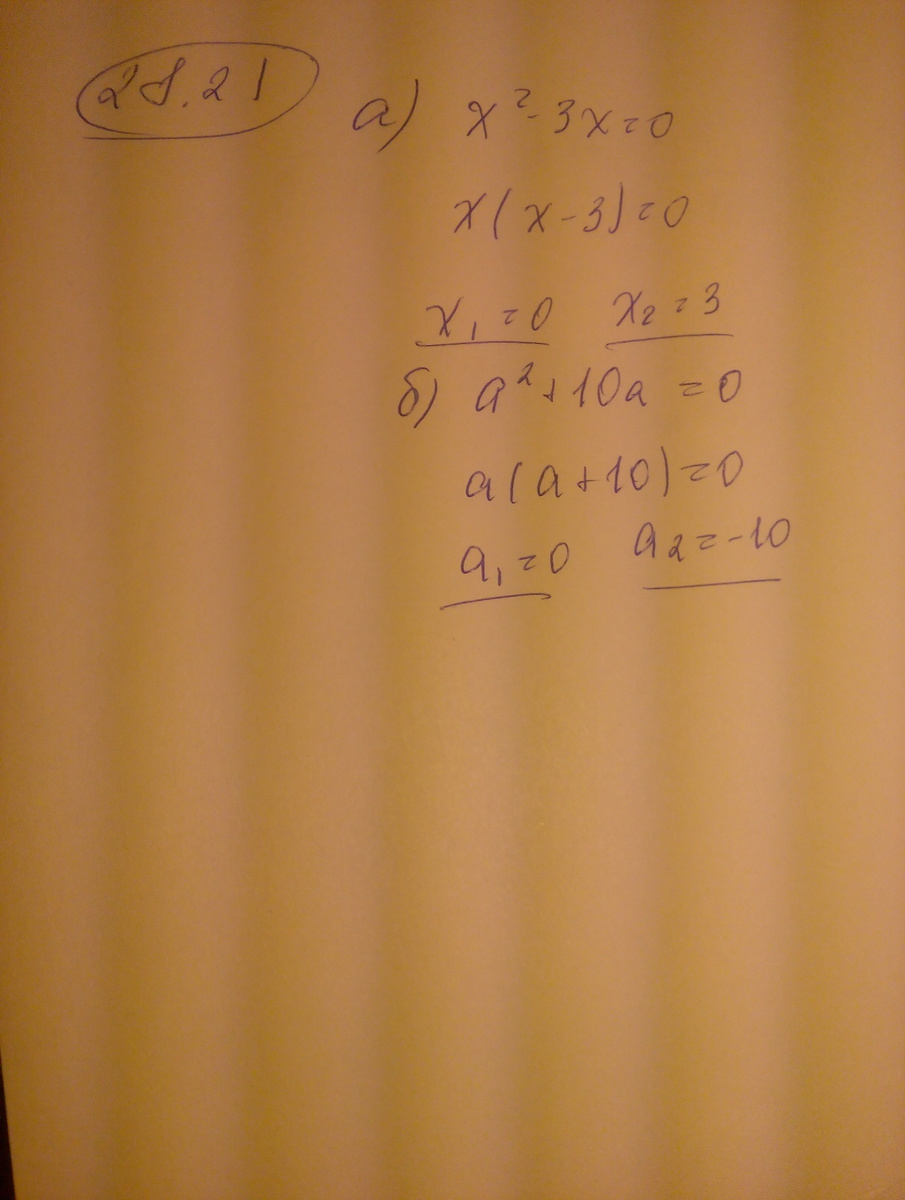 28.21
а) x² - 3x = 0
x(x - 3) = 0
x₁ = 0 x₂ = 3
б) a² + 10a = 0
a(a + 10) = 0
a₁ = 0 a₂ = -10